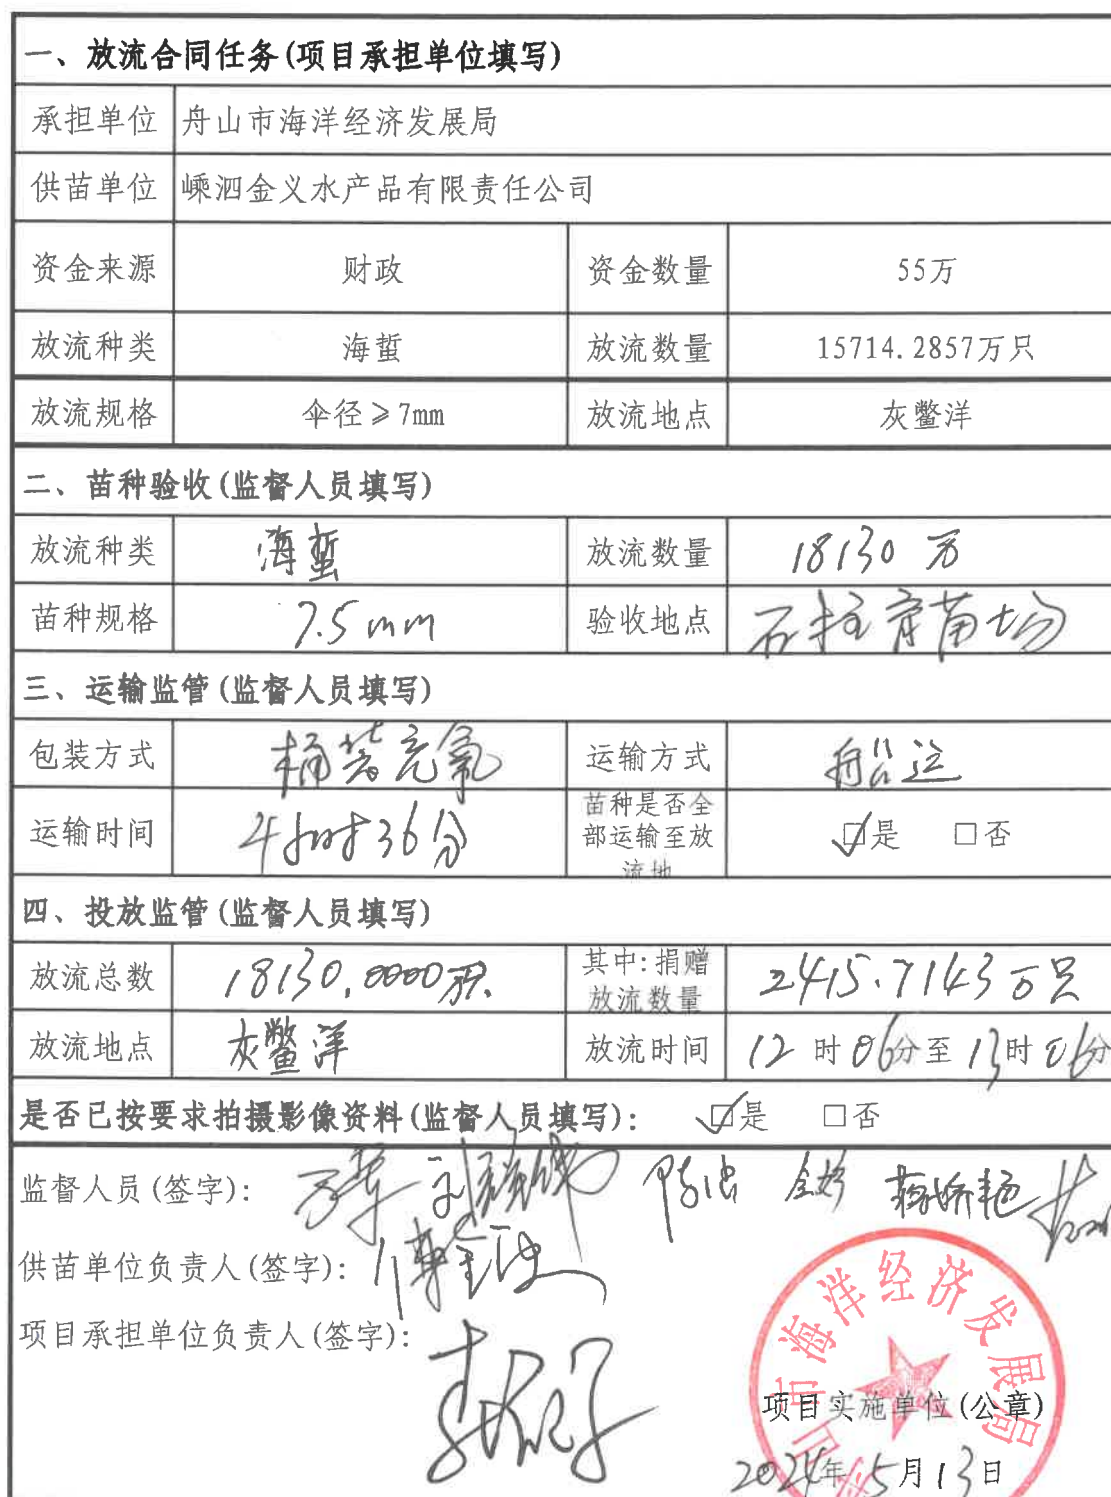 一、放流合同任务(项目承担单位填写)
承担单位 舟山市海洋经济发展局
供苗单位 嵊泗金义水产品有限责任公司
资金来源 财政 资金数量 55万
放流种类 海蜇 放流数量 15714.2857万只
放流规格 伞径≥7mm 放流地点 灰鳖洋
二、苗种验收(监督人员填写)
放流种类 海蜇 放流数量 18130万
苗种规格 7.5mm 验收地点 石柱育苗场
三、运输监管(监督人员填写)
包装方式 桶装充氧 运输方式 船运
运输时间 4小时36分 苗种是否全部运输至放流地 ☑是 □否
四、投放监管(监督人员填写)
放流总数 18130.0000万只 其中:捐赠放流数量 2415.7143万只
放流地点 灰鳖洋 放流时间 12时06分至13时06分
是否已按要求拍摄影像资料(监督人员填写): ☑是 □否
监督人员(签字):
供苗单位负责人(签字):
项目承担单位负责人(签字):
舟山市海洋经济发展局
项目实施单位(公章)
2024年5月13日